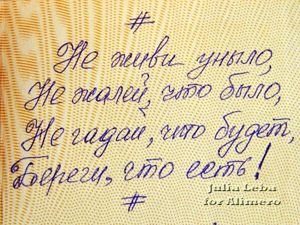 #
Не живи уныло,
Не жалей, что было,
Не гадай, что будет,
Береги, что есть!
Julia Leba
for Alimero
#